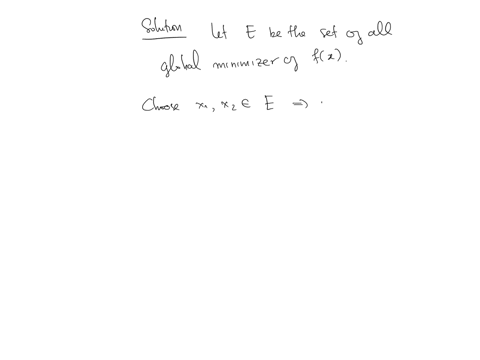 Solution Let E be the set of all
global minimizer of f(x).
Choose x₁, x₂ ∈ E ⇒ .